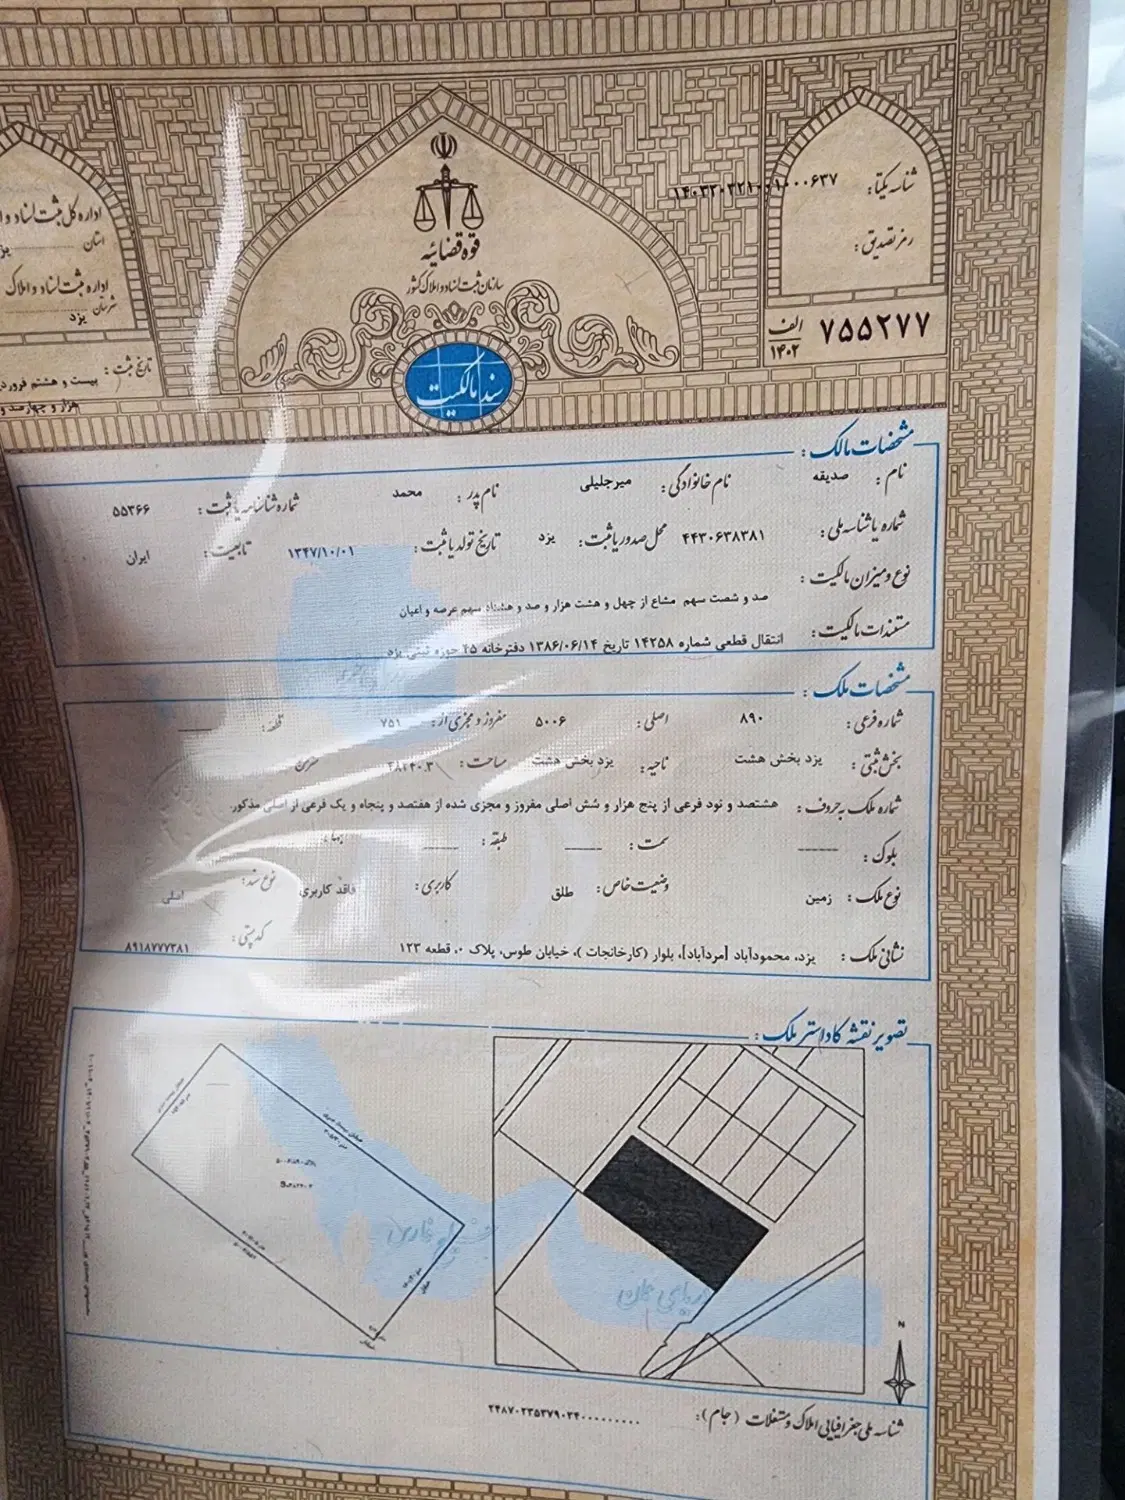 شناسه یکتا:
رمز تصدیق:
۷۵۵۲۷۷ الف ۱۴۰۲
قوه قضائیه
سازمان ثبت اسناد و املاک کشور
سند مالکیت
اداره کل ثبت اسناد و
استان
اداره ثبت اسناد و املاک
شهرستان یزد
تاریخ ثبت:
بیست و هشتم
هزار و چهارصد و
مشخصات مالک:
نام: صدیقه نام خانوادگی: میرجلیلی نام پدر: محمد شماره شناسنامه یا ثبت: ۵۵۳۶۶
شماره یا شناسه ملی: ۴۴۳۰۶۳۸۳۸۱ محل صدور یا ثبت: یزد تاریخ تولد یا ثبت: ۱۳۴۷/۱۰/۰۱ تابعیت: ایران
نوع و میزان مالکیت:
صد و شصت سهم مشاع از چهل و هشت هزار و صد و هشتاد سهم عرصه و اعیان
مستندات مالکیت: انتقال قطعی شماره ۱۴۲۵۸ تاریخ ۱۳۸۶/۰۶/۱۴ دفترخانه ۲۵ حوزه ثبتی یزد
مشخصات ملک:
شماره فرعی: ۸۹۰ اصلی: ۵۰۰۶ مفروز و مجزی از: ۷۵۱ قطعه:
بخش ثبتی: یزد بخش هشت ناحیه: یزد بخش هشت مساحت:
شماره ملک به حروف: هشتصد و نود فرعی از پنج هزار و شش اصلی مفروز و مجزی شده از هفتصد و پنجاه و یک فرعی از اصلی مذکور
بلوک: سمت: طبقه:
نوع ملک: زمین وضعیت خاص: طلق کاربری: فاقد کاربری نوع سند: اصلی
نشانی ملک: یزد، محمودآباد [مردآباد]، بلوار (کارخانجات )، خیابان طوس، پلاک ۰، قطعه ۱۲۳ کدپستی: ۸۹۱۸۷۷۷۳۸۱
تصویر نقشه کاداستر ملک:
N
دریای عمان
شناسه ملی جغرافیایی املاک و مستغلات (جام):